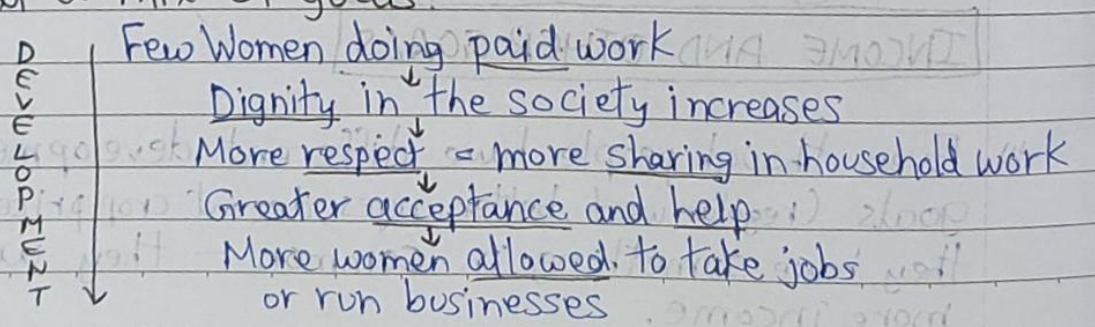 Few Women doing paid work
↓
Dignity in the society increases
↓
More respect = more sharing in household work
↓
Greater acceptance and help
↓
More women allowed to take jobs
or run businesses
DEVELOPMENT